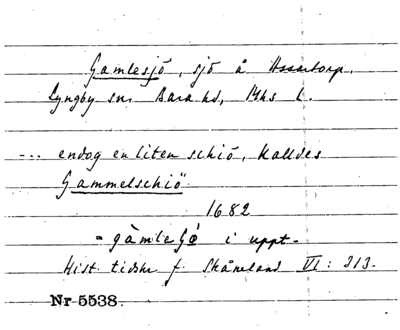 Gamlesjö, sjö å Assartorp.
Lyngby sn. Bara hd, Mhs l.
--- endog en liten schiö, kalldes
Gammelschiö
1682
= gàmlesjø i uppt.
Hist. tidskr f. Skåneland VI: 313.
Nr 5538.